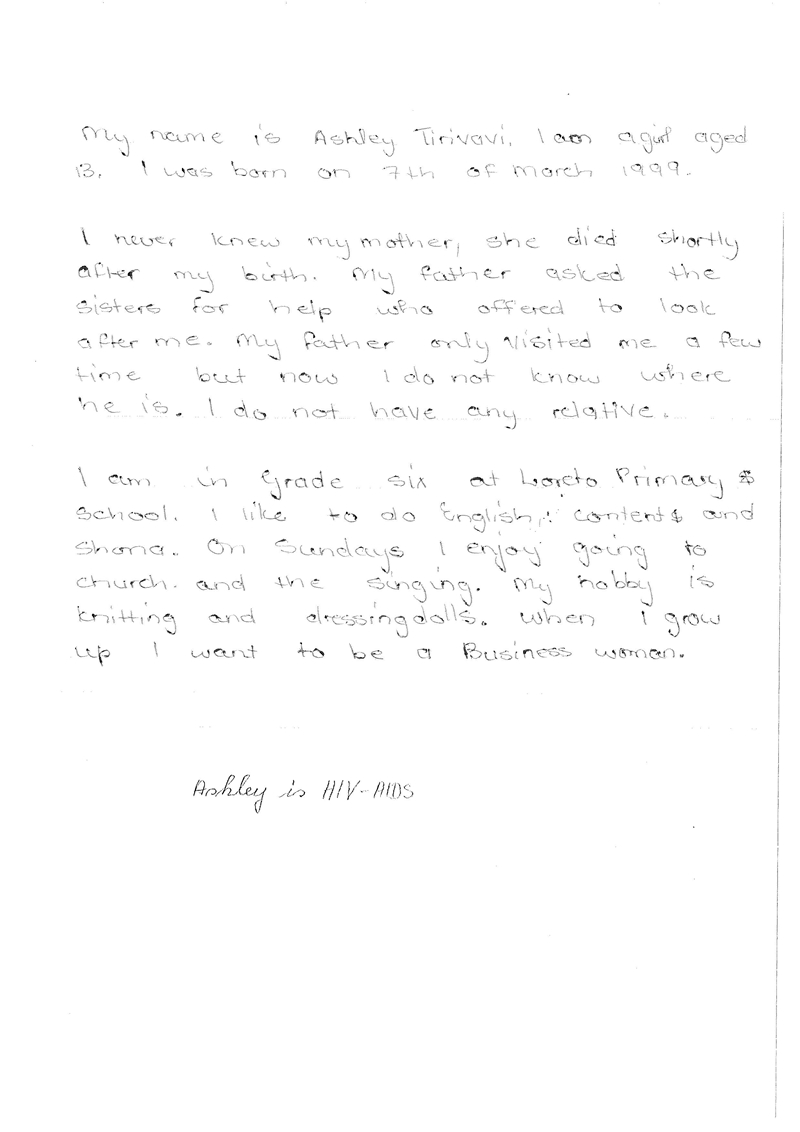 My name is Ashley Tirivavi. I am a girl aged
13. I was born on 7th of March 1999.
I never knew my mother, she died shortly
after my birth. My father asked the
sisters for help who offered to look
after me. My father only visited me a few
time but now I do not know where
he is. I do not have any relative.
I am in Grade six at Loreto Primary S
School. I like to do English, contents and
Shona. On Sundays I enjoy going to
church. and the singing. My hobby is
knitting and dressing dolls. When I grow
up I want to be a Business woman.
Ashley is HIV-AIDS